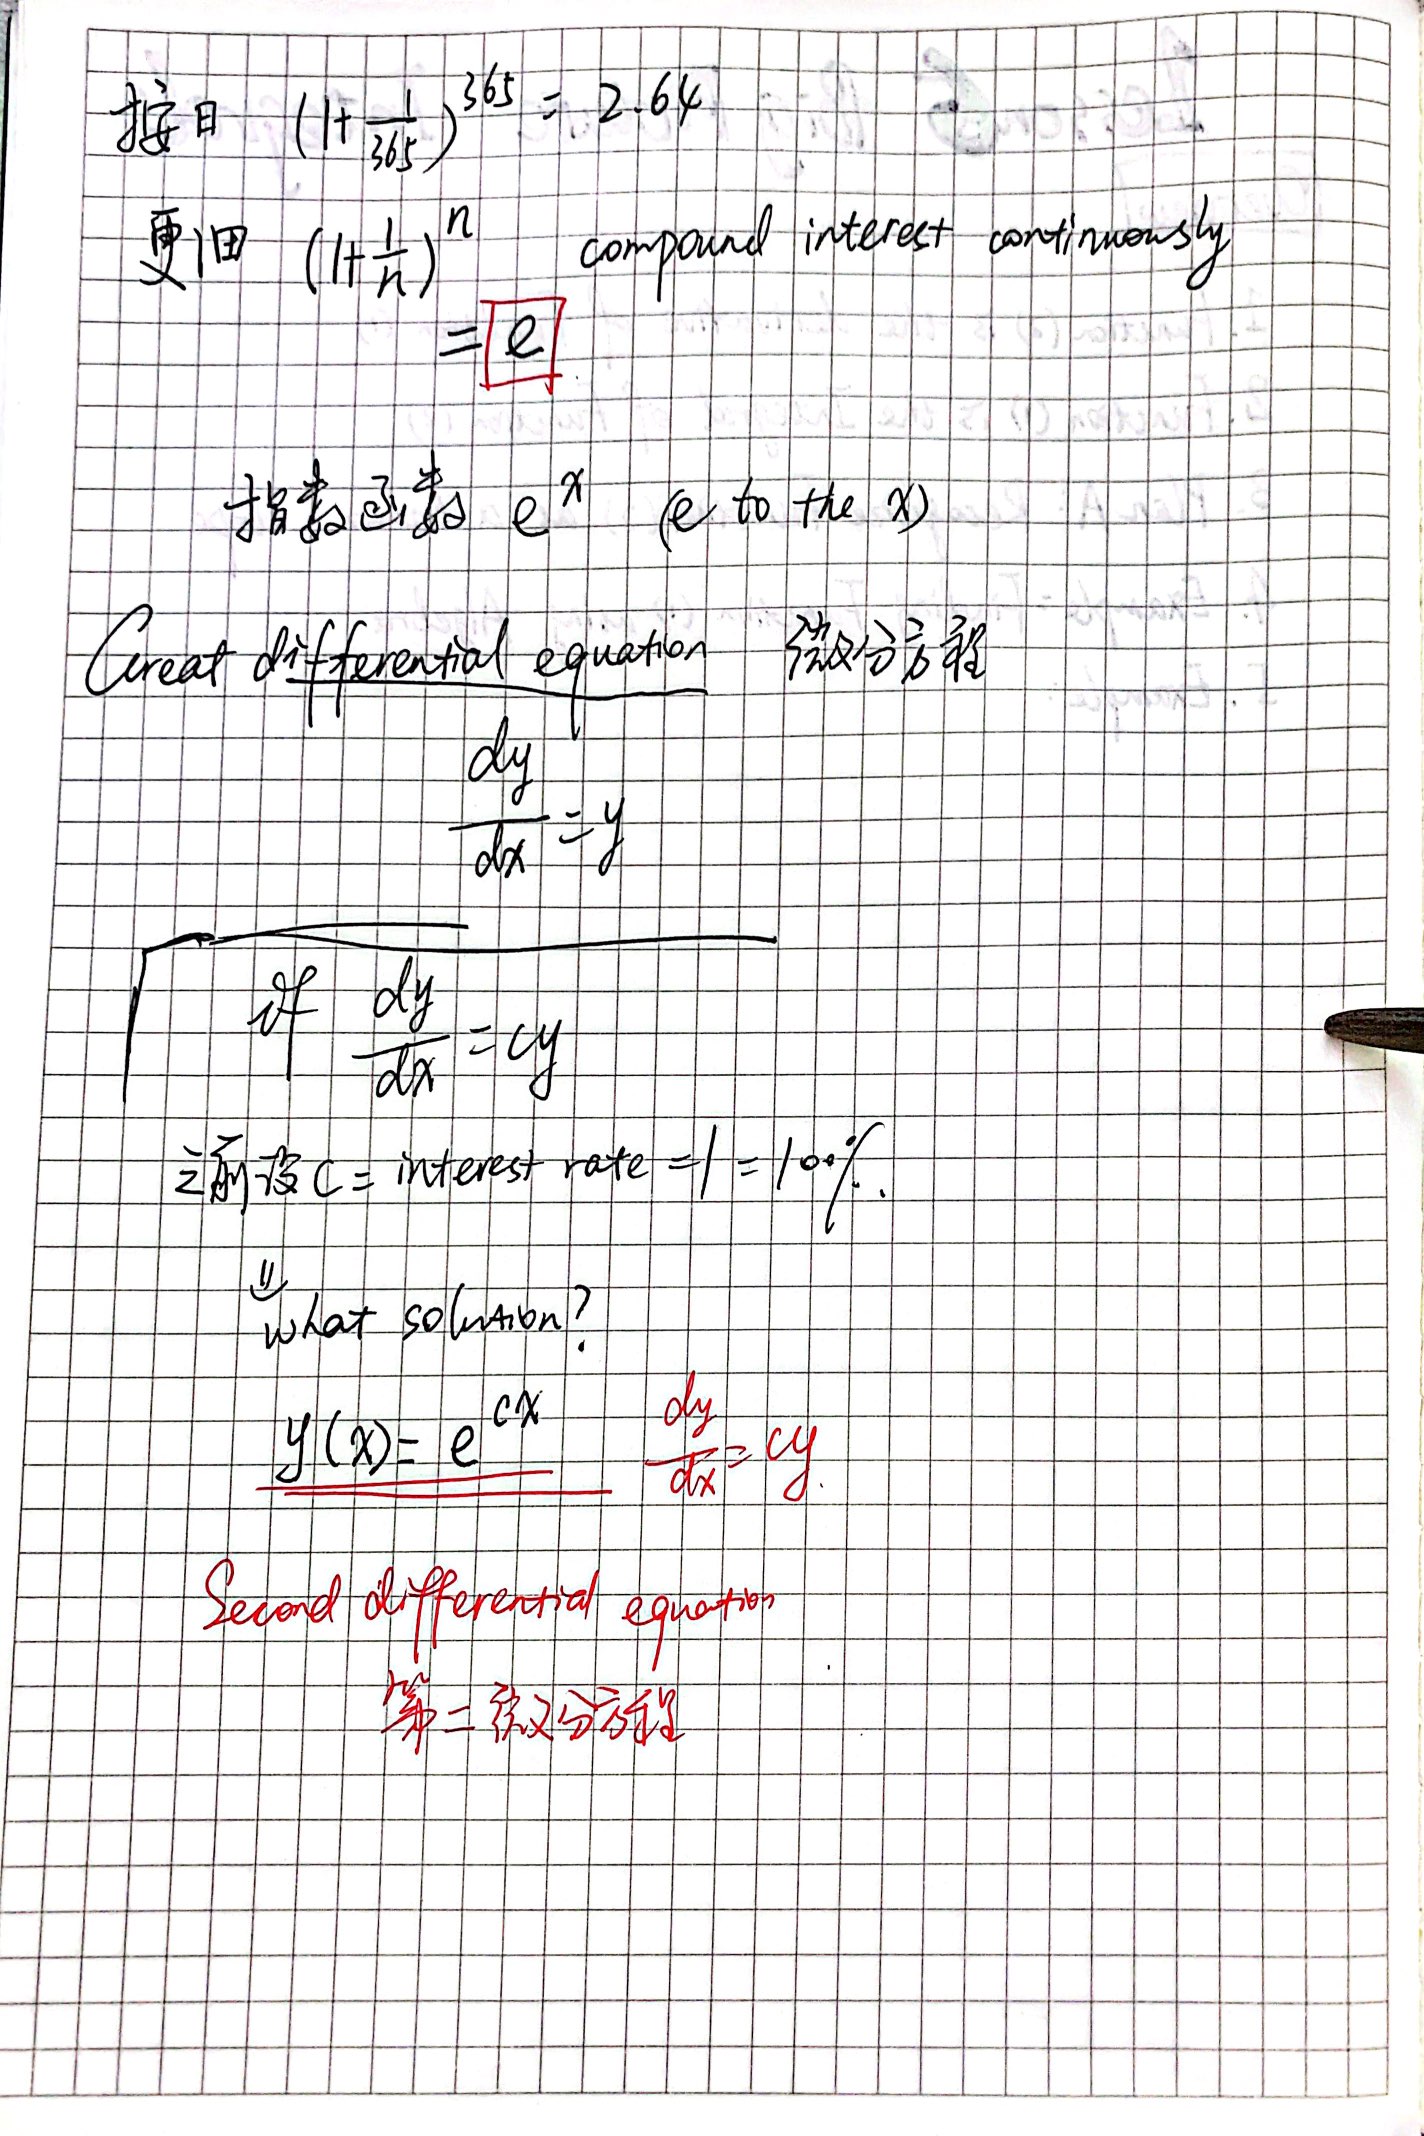 按日 (1+1/365)^365 = 2.64
更细 (1+1/n)^n compound interest continuously
= e
指数函数 e^x (e to the x)
Great differential equation 微分方程
dy/dx = y
if dy/dx = cy
之前设 C = interest rate = 1 = 100%.
what solution?
y(x) = e^cx dy/dx = cy.
Second differential equation
第二微分方程